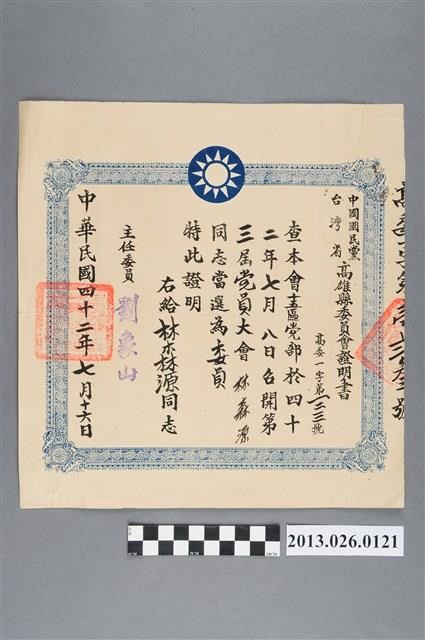 中國國民黨
台灣省
高雄縣委員會證明書
高委一字第一三三號
查本會主區党部於四十
二年七月八日召開第
三屆党員大會 林森源
同志當選為委員
特此證明
右給林森源同志
主任委員
劉象山
中華民國四十二年七月十六日
2013.026.0121